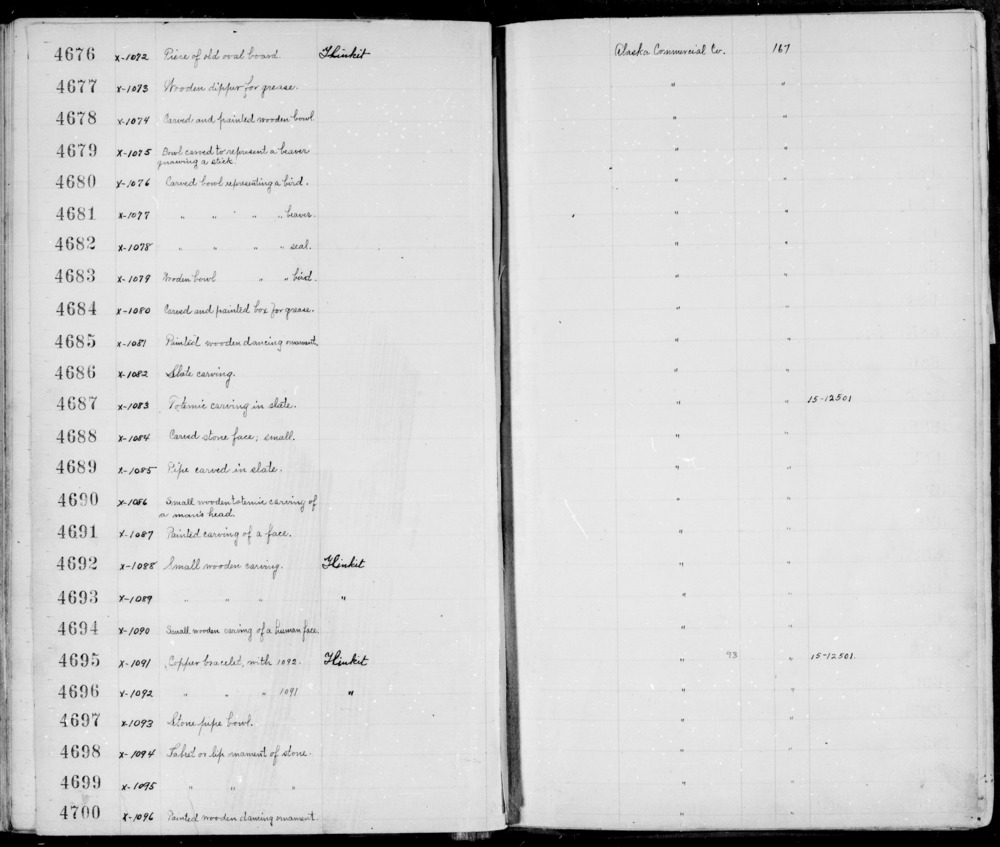 4676 X-1072 Piece of old oval board. Thlinkit Alaska Commercial Co. 167
4677 X-1073 Wooden dipper for grease. " "
4678 X-1074 Carved and painted wooden bowl " "
4679 X-1075 Bowl carved to represent a beaver " "
gnawing a stick.
4680 X-1076 Carved bowl representing a bird. " "
4681 X-1077 " " " " beaver. " "
4682 X-1078 " " " " seal. " "
4683 X-1079 Wooden bowl " " bird. " "
4684 X-1080 Carved and painted box for grease. " "
4685 X-1081 Painted wooden dancing ornament. " "
4686 X-1082 Slate carving. " "
4687 X-1083 Totemic carving in slate. " " 15-12501
4688 X-1084 Carved stone face; small. " "
4689 X-1085 Pipe carved in slate. " "
4690 X-1086 Small wooden totemic carving of " "
a man's head.
4691 X-1087 Painted carving of a face. " "
4692 X-1088 Small wooden carving. Thlinkit " "
4693 X-1089 " " " " " "
4694 X-1090 Small wooden carving of a human face. " "
4695 X-1091 Copper bracelet, with 1092. Thlinkit " 93 " 15-12501.
4696 X-1092 " " " 1091 " " "
4697 X-1093 Stone pipe bowl. " "
4698 X-1094 Labret or lip ornament of stone. " "
4699 X-1095 " " " " "
4700 X-1096 Painted wooden dancing ornament " "